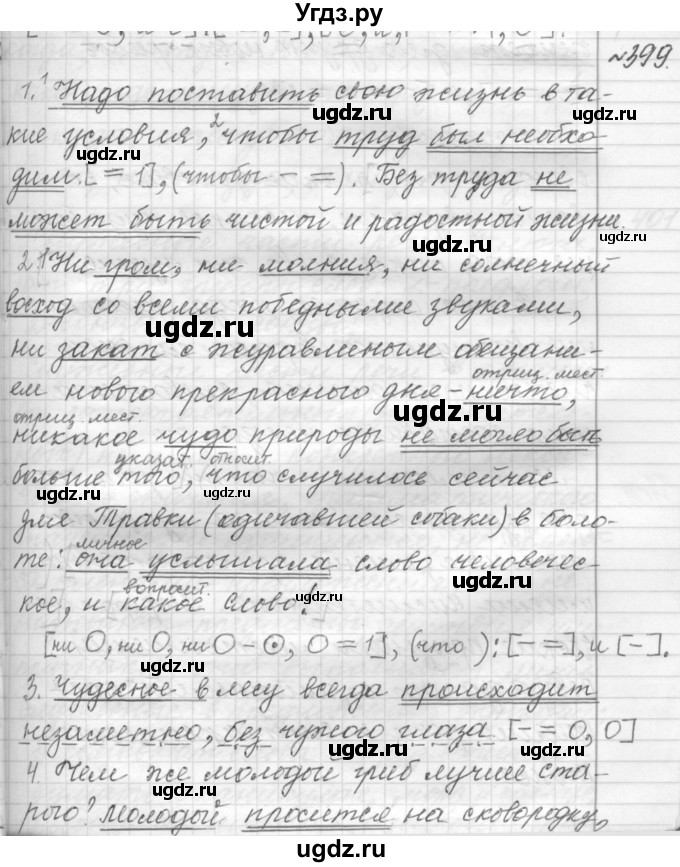 Угдз.ру
№399.
1.¹ Надо поставить свою жизнь в та-
кие условия, ²чтобы труд был необхо-
дим. [= 1], (чтобы - =). Без труда не
может быть чистой и радостной жизни.
2.¹ Ни гром, ни молния, ни солнечный
восход со всеми победными звуками,
ни закат с журавлиным обещани-
отриц. мест.
ем нового прекрасного дня - ничто,
отриц. мест
никакое чудо природы не могло быть
указат. относит.
больше того, что случилось сейчас
для Травки (одичавшей собаки) в боло-
личное
те: она услышала слово человечес-
вопросит.
кое, и какое слово!
[ни O, ни O, ни O - ⊙, O = 1], (что): [- =], и [-].
3. Чудесное в лесу всегда происходит
незаметно, без чужого глаза [- = O, O]
4. Чем же молодой гриб лучше ста-
рого? Молодой просится на сковородку,
ugdz.ru ugdz.ru
ugdz.ru ugdz.ru
ugdz.ru ugdz.ru
ugdz.ru ugdz.ru
ugdz.ru ugdz.ru
ugdz.ru ugdz.ru
ugdz.ru ugdz.ru
ugdz.ru ugdz.ru
ugdz.ru ugdz.ru